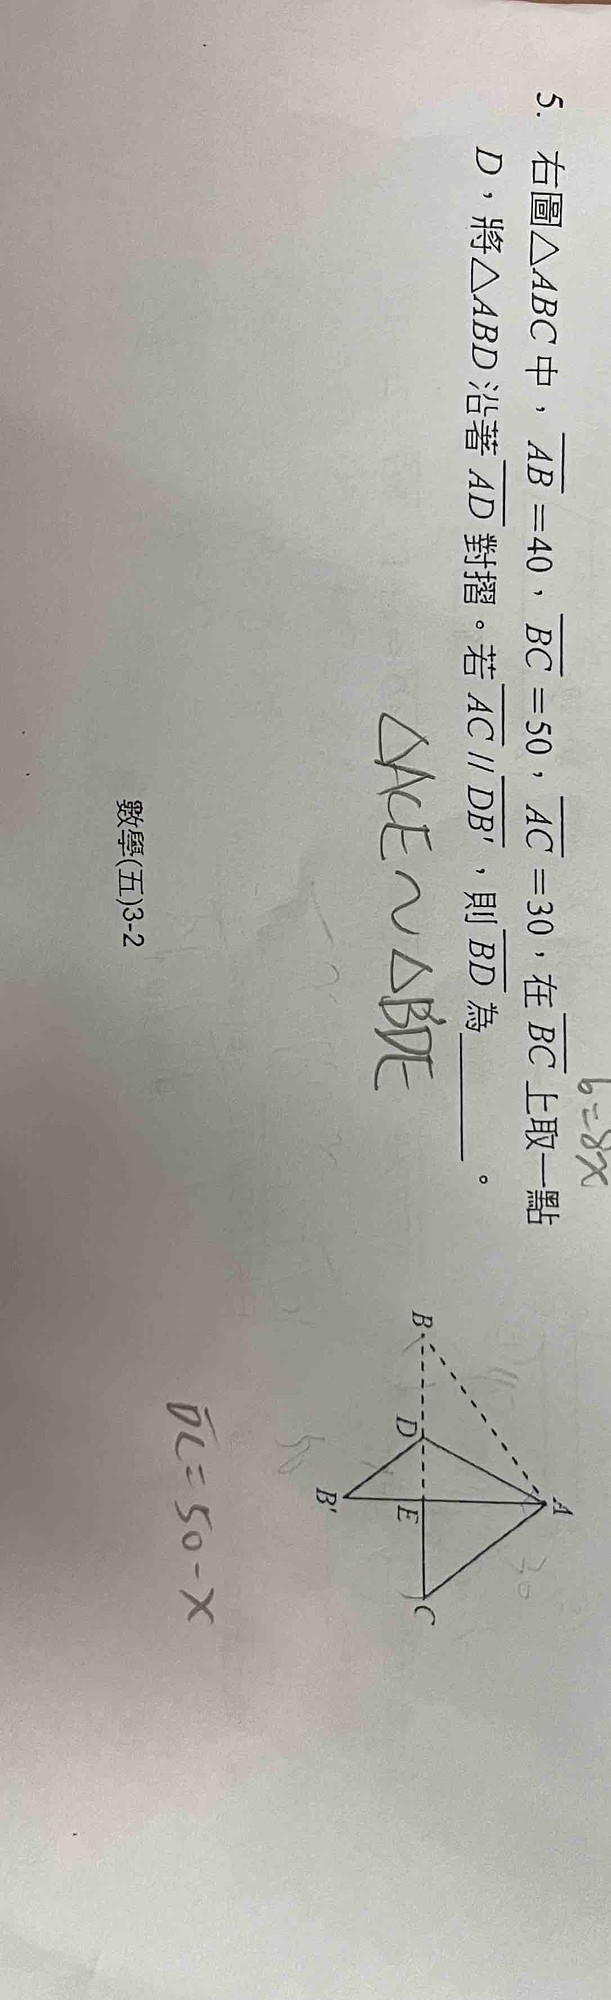 b=8x
5. 右圖△ABC中，AB=40、BC=50、AC=30，在BC上取一點
D，將△ABD沿著AD對摺。若AC//DB'，則BD為______。
△ACE~△B'DE
A
30
B
D
E
C
B'
50
DC=50-x
數學(五)3-2